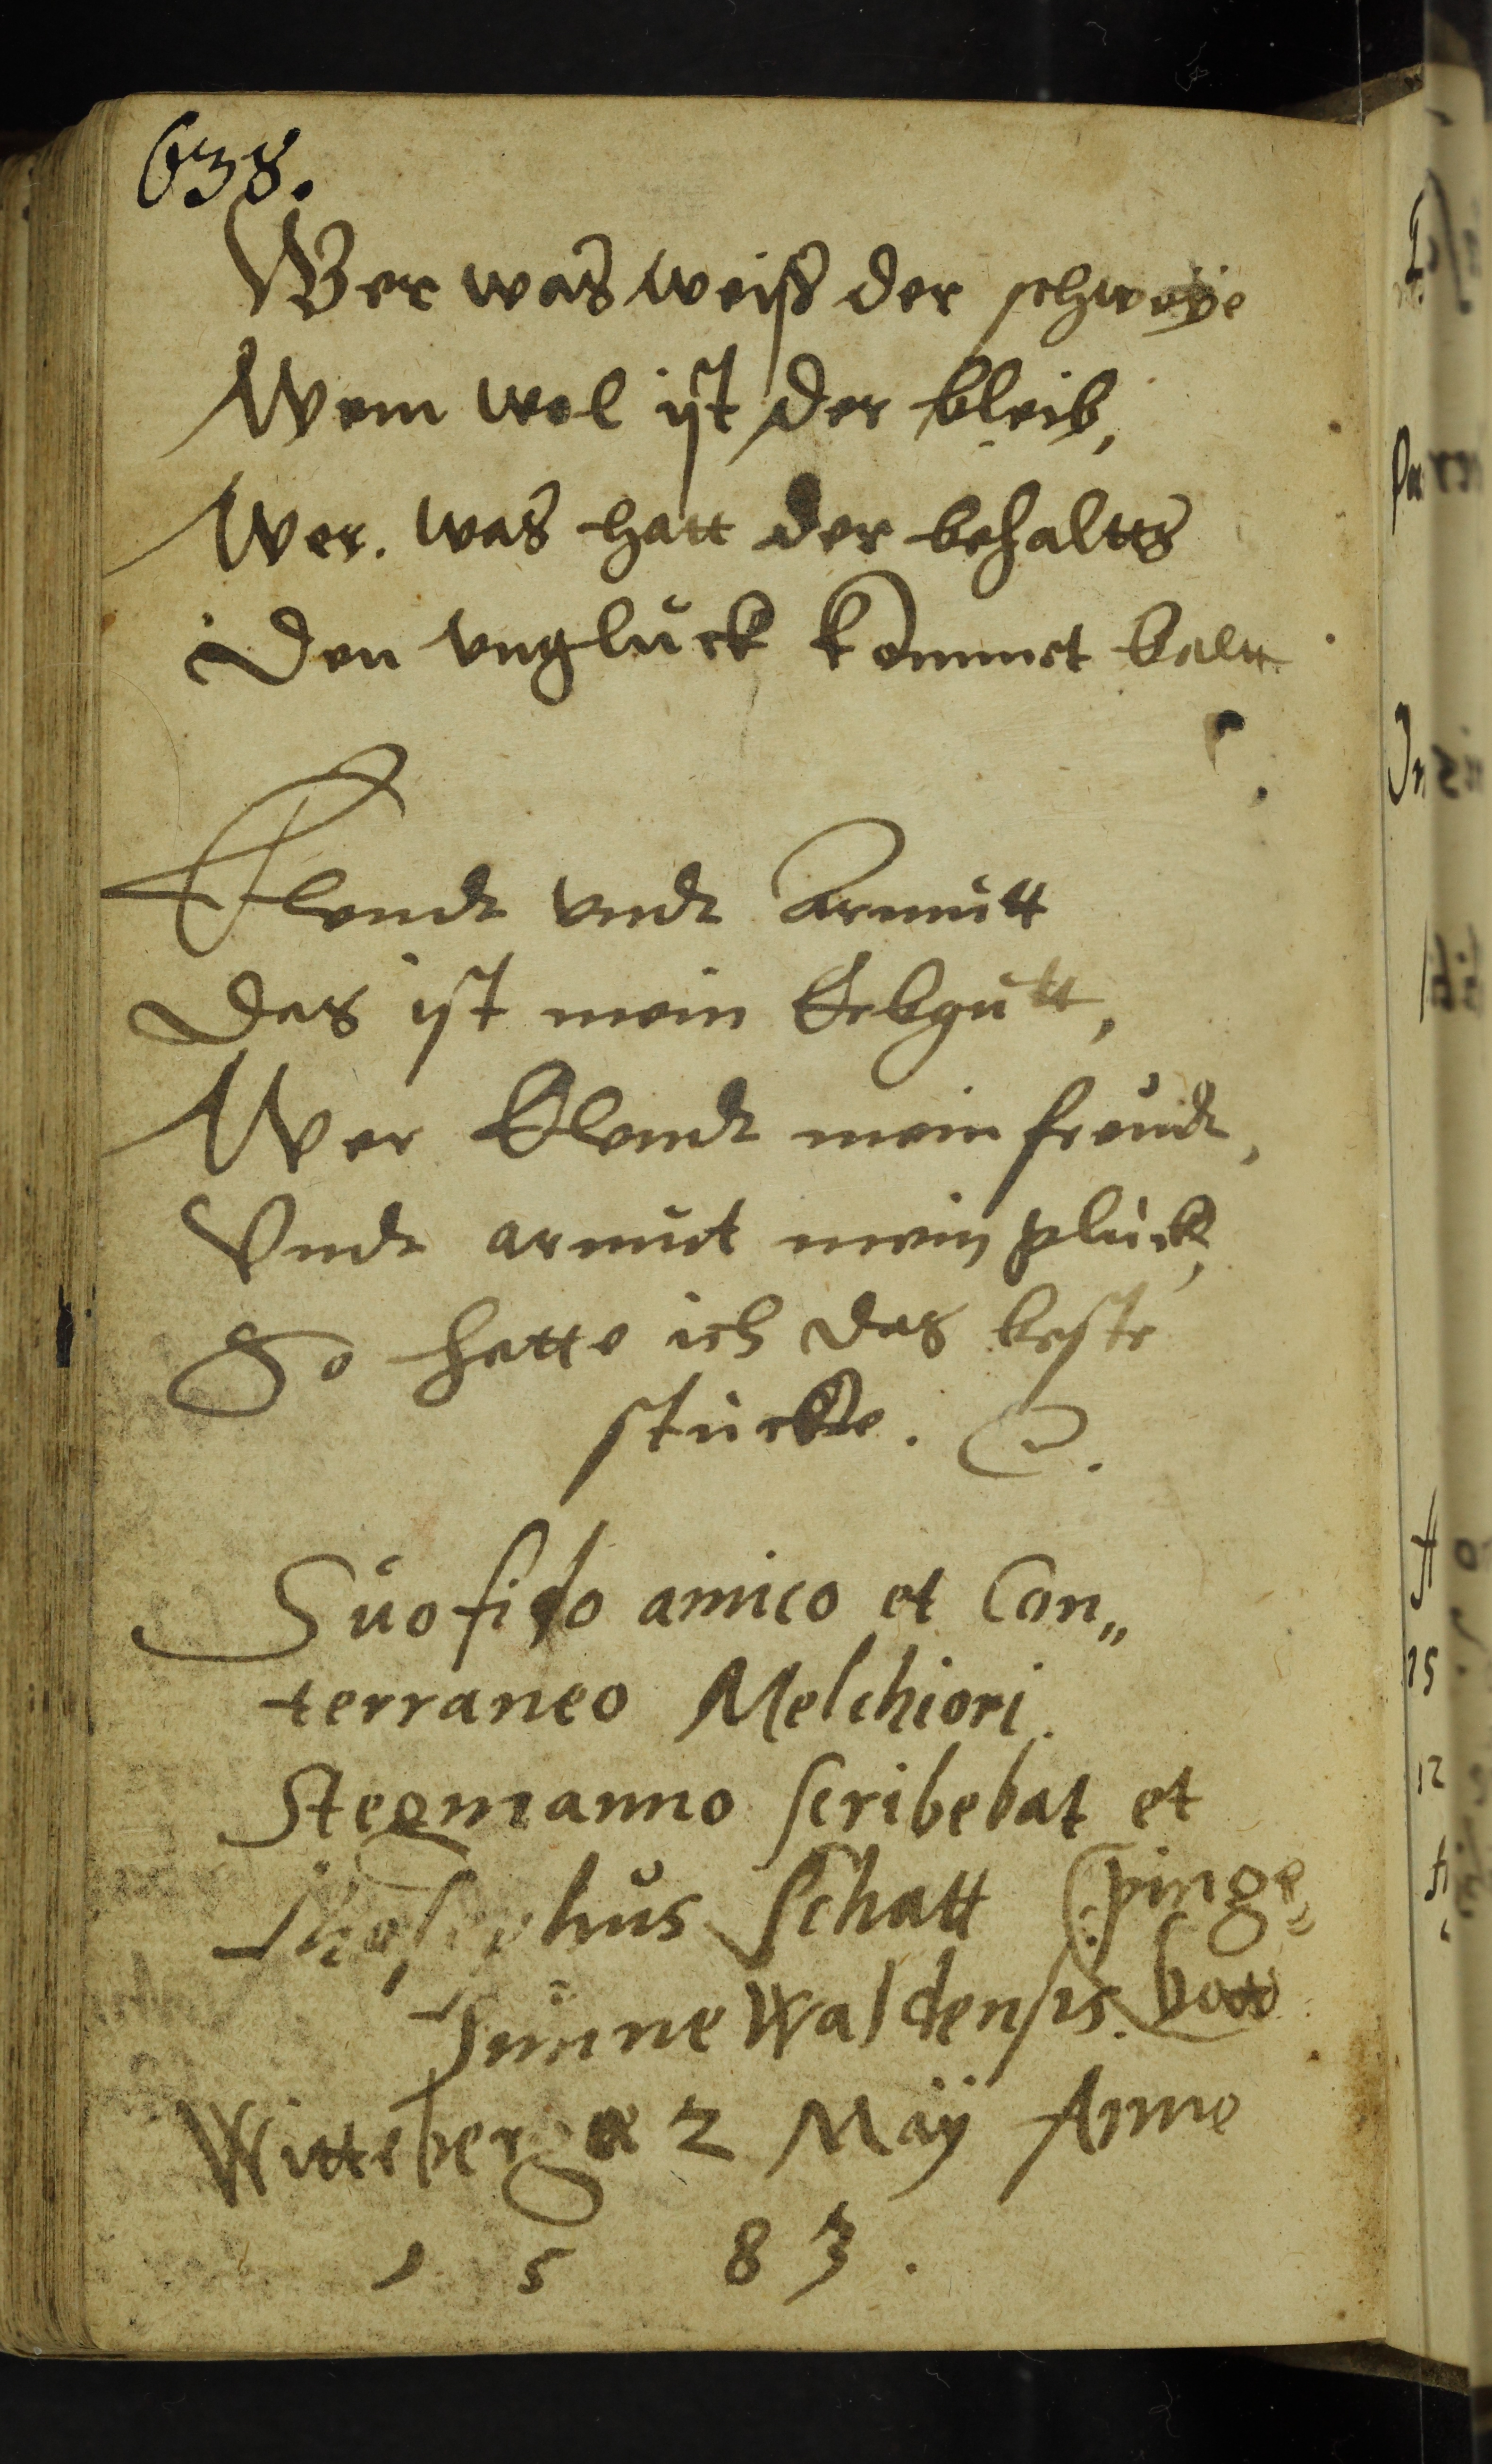 638.
Wer was weiß der schweÿe
Wem wol ist der bleib,
Wer. was hatt der behaltts
Den vnglück kommet baltt
Elendt vndt Armutt
Das ist mein Erbgutt,
Wer Elendt mein freudt,
Vndt armut mein glück,
So hatte ich das beste
stücke.
Suo fido amico et Con„
terraneo Melchiori
Stegmanno scribebat et
Schatt pinge„
Sunnewaldensis. bat
Witteberge 2 Maÿ Anno
1 5 8 3.